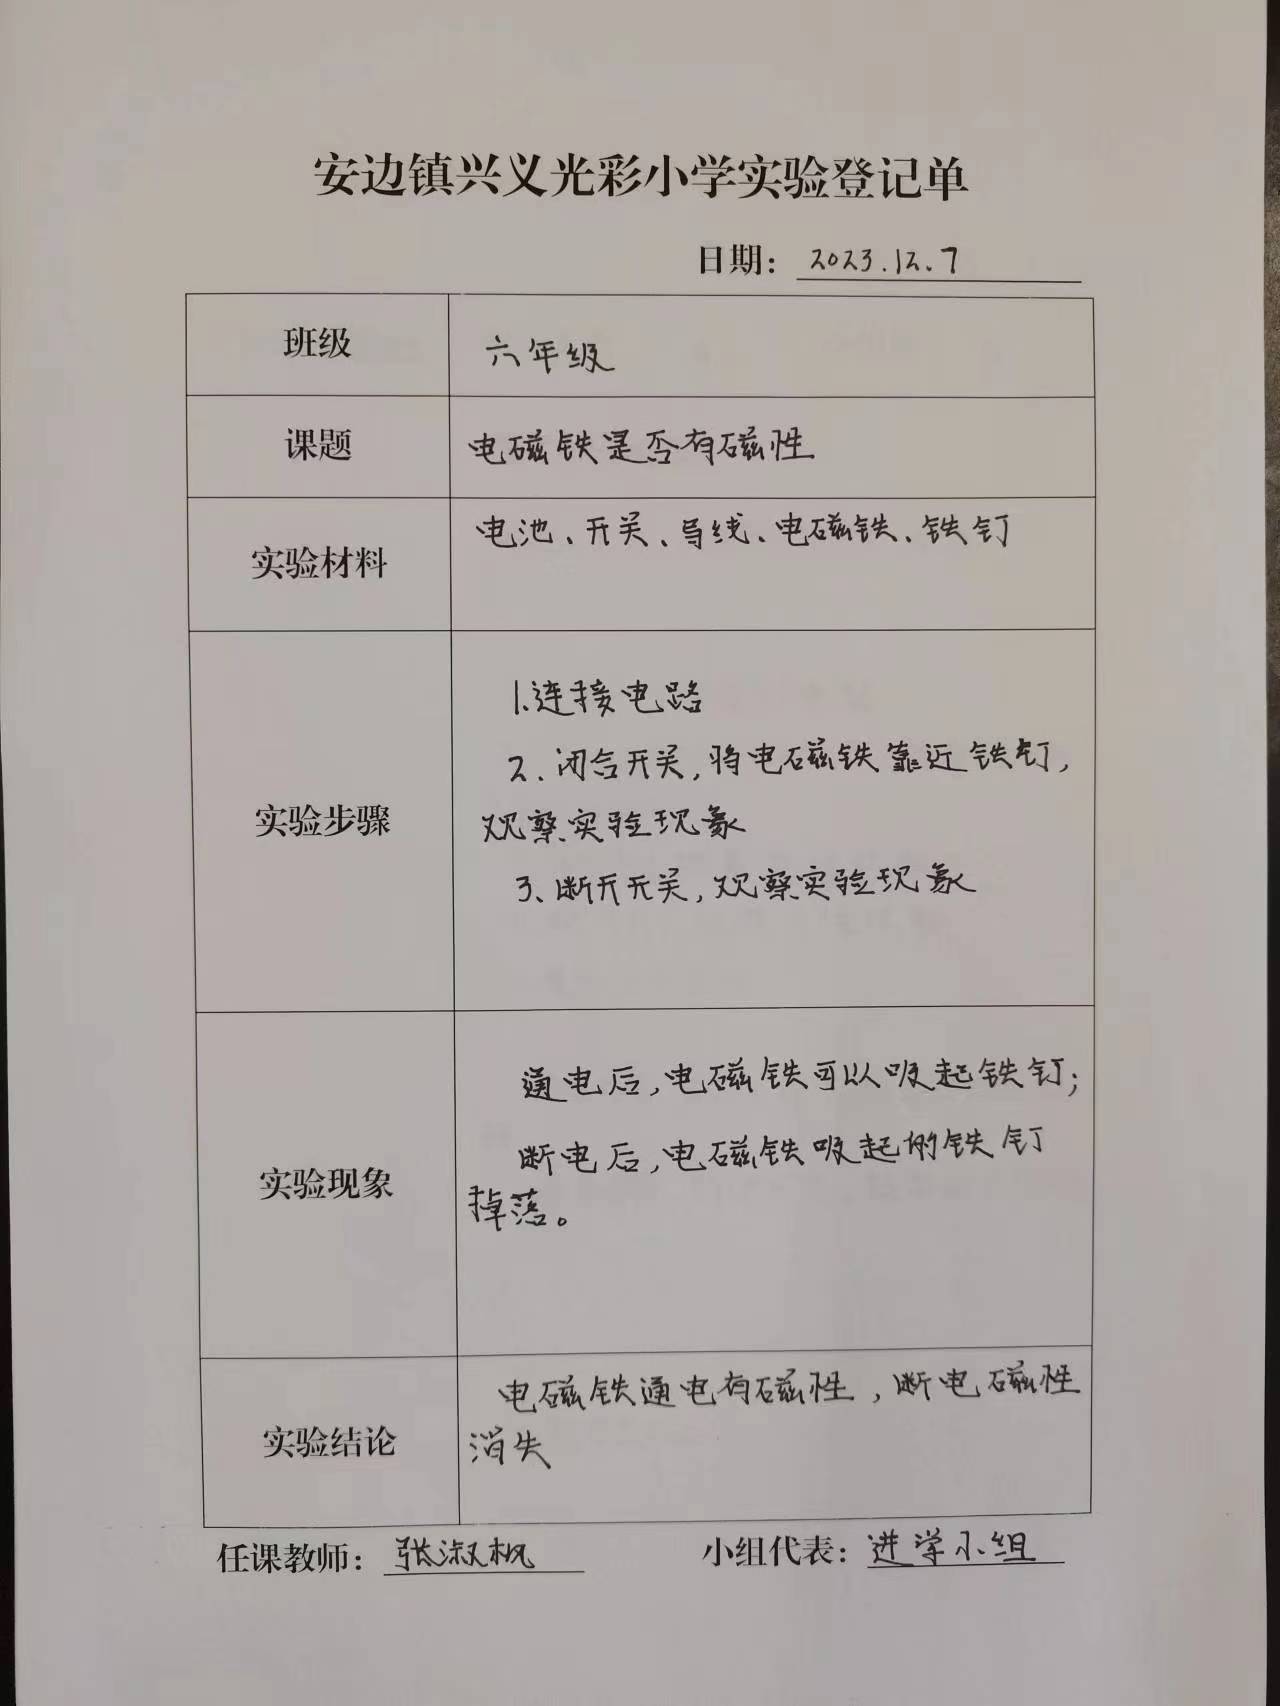 安边镇兴义光彩小学实验登记单
日期：2023.12.7
班级
六年级
课题
电磁铁是否有磁性
实验材料
电池、开关、导线、电磁铁、铁钉
实验步骤
1.连接电路
2、闭合开关,将电磁铁靠近铁钉,
观察实验现象
3、断开开关,观察实验现象
实验现象
通电后,电磁铁可以吸起铁钉;
断电后,电磁铁吸起的铁钉
掉落。
实验结论
电磁铁通电有磁性,断电磁性
消失
任课教师：张淑枫 小组代表：进学小组